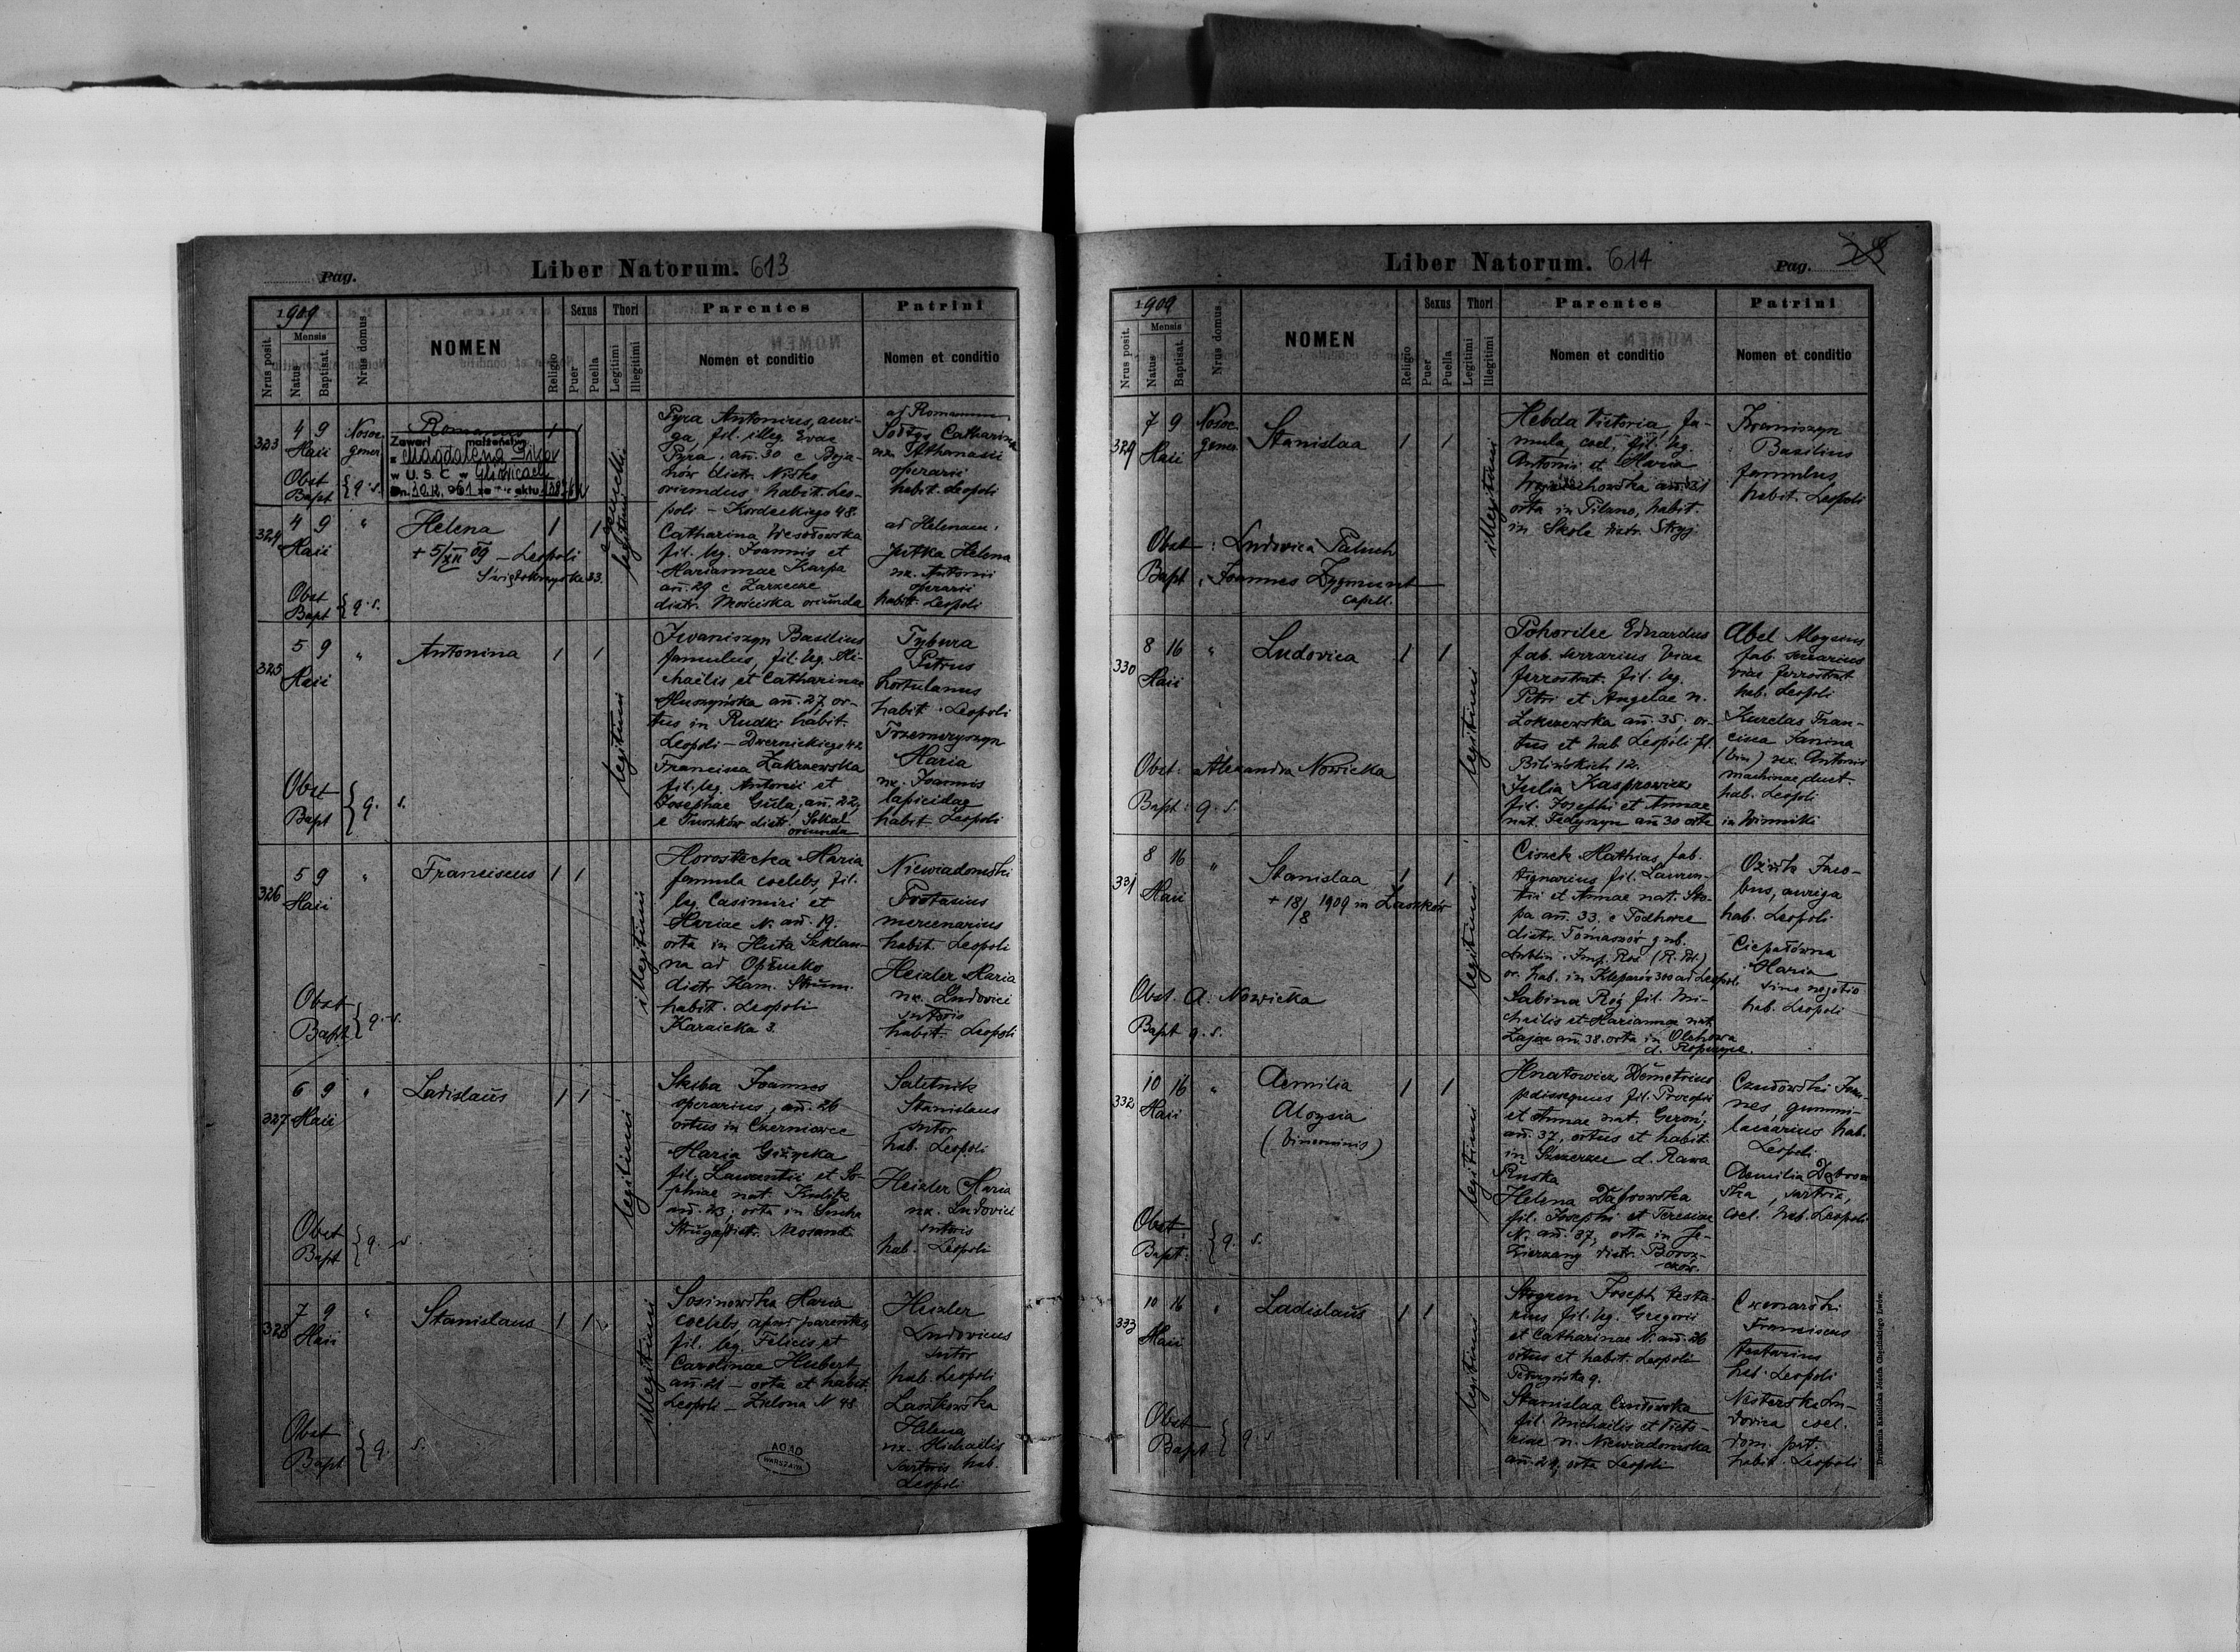 Pag.
Liber Natorum. 613
1909
Mensis
Nrus posit.
Natus
Baptisat.
Nrus domus
NOMEN
Religio
Sexus
Puer
Puella
Thori
Legitimi
Illegitimi
Parentes
Nomen et conditio
Patrini
Nomen et conditio
323
4 9
Maii
Nosoc.
gener.
Romanus
1 1
Zawarł małżeństwo
z Magdalena
w U. S. C. w Gliwicach
Obst
Bapt } q. s.
gemelli
legitimi
Pyra Antonius, auri-
ga, fil. illeg. Evae
Pyra, an. 30 e Boja-
nów distr. Nisko
oriundus habit. Leo-
poli - Kordeckiego 48.
Catharina Wesołowska
fil. leg. Joannis et
Mariannae Karpa
an. 29 e Zarzecze
distr. Mościska oriunda
ad Romanum
Catharina
ux. Athanasii
operarii
habit. Leopoli
324
4 9
Maii
"
Helena
1 1
+ 5/XII 09 - Leopoli
Świętokrzyska 33.
Obst
Bapt } q. s.
ad Helenam:
Jutka Helena
ux. Antonii
operarii
habit. Leopoli
325
5 9
Maii
"
Antonina
1 1
Obst
Bapt } q. s.
legitimi
Iwaniszyn Basilius
famulus, fil. leg. Mi-
chaelis et Catharinae
Muszyńska an. 27, or-
tus in Rudki habit.
Leopoli - Dwernickiego 42
Francisca Zakrzewska
fil. leg. Antonii et
Josephae Gula, an. 22,
e Tuszków distr. Sokal
oriunda
Tybura
Petrus
hortulanus
habit. Leopoli
Maria
ux. Joannis
lapicidae
habit. Leopoli
326
5 9
Maii
"
Franciscus
1 1
Obst
Bapt } q. s.
illegitimi
Horostecka Maria
famula coelebs, fil.
leg. Casimiri et
Mariae N. an. 19.
orta in Huta Szklan-
na ad Opłucko
distr. Kam. Strum.
habit. Leopoli
Karaicka 3.
Niewiadomski
Protasius
mercenarius
habit. Leopoli
Heizler Maria
ux. Ludovici
sutoris
habit. Leopoli
327
6 9
Maii
"
Ladislaus
1 1
Obst
Bapt } q. s.
legitimi
Skiba Joannes
operarius, an. 26
ortus in Czerniawce
Maria Giżycka
fil. Laurentii et So-
phiae nat. Kulik
an. 23, orta in Sucha
Struga distr. Neosand.
Saletnik
Stanislaus
sutor
hab. Leopoli
Heizler Maria
ux. Ludovici
sutoris
hab. Leopoli
328
7 9
Maii
"
Stanislaus
1 1
Obst
Bapt } q. s.
illegitimi
Sosinowska Maria
coelebs, apud parentes,
fil. leg. Felicis et
Carolinae Hubert
an. 21 - orta et habit.
Leopoli - Zielona N 48
Heizler
Ludovicus
sutor
hab. Leopoli
Laszkowska
Helena
ux. Michaelis
sartoris hab.
Leopoli
AGAD
WARSZAWA
Liber Natorum. 614
Pag.
1909
Mensis
Nrus posit.
Natus
Baptisat.
Nrus domus
NOMEN
Religio
Sexus
Puer
Puella
Thori
Legitimi
Illegitimi
Parentes
Nomen et conditio
Patrini
Nomen et conditio
329
7 9
Maii
Nosoc.
gener.
Stanislaa
1 1
Obst: Ludovica Paluch
Bapt: Joannes Zygmunt
capell.
illegitimi
Hebda Victoria, fa-
mula, coel. fil. leg.
Antonii et Maria
Wojciechowska an. 21
orta in Pilzno, habit.
in Skole distr. Stryj
Iwaniszyn
Basilius
famulus
habit. Leopoli
330
8 16
Maii
"
Ludovica
1 1
Obst: Alexandra Nowicka
Bapt: q. s.
legitimi
Pohorilec Eduardus
fab. serrarius viae
ferrostrat. fil. leg.
Petri et Angelae n.
an. 35, or-
tus et hab. Leopoli pl.
Bilińskich 12.
Julia Kasprowicz
fil. Josephi et Annae
nat. Fedyszyn an 30 orta
in Winniki
Abel Aloysius
fab. serrarius
viae ferrostrat
hab. Leopoli
Kurelas Fran-
cisca Janina
(bin) ux. Antonii
machinae duct.
hab. Leopoli
331
8 16
Maii
"
Stanislaa
1 1
+ 18/8 1909 in Zaszków
Obst. A. Nowicka
Bapt q. s.
legitimi
Ciszek Mathias, fab.
tignarius fil. Lauren-
tii et Annae nat. Sto-
pa an. 33. e Podhorce
distr. Tomaszów gub.
Lublin. Imp. Ros. (R. Pol.)
or. hab. in Kleparów 300 ad Leopoli
Sabina Rój fil. Mi-
chaelis et Mariannae nat.
Zając an. 38. orta in Olchowa
d. Ropczyce.
Jaco-
bus, auriga
hab. Leopoli
Ciepałówna
Maria
sine negotio
hab. Leopoli
332
10 16
Maii
"
Aemilia
Aloysia
(binominis)
1 1
Obst:
Bapt: } q. s.
legitimi
Hnatowicz Demetrius
pedissequus fil. Procopii
et Annae nat. Geroń,
an. 37, ortus et habit.
in Szczerzec d. Rawa
Ruska
Helena Dąbrowska
fil. Josephi et Teresiae
N. an. 37, orta in Je-
zierzany distr. Borsz-
czów.
Czudowski Joan-
nes, gummi-
laccarius hab.
Leopoli
Aemilia Dąbrow-
ska, sartrix,
coel. hab. Leopoli
333
10 16
Maii
"
Ladislaus
1 1
Obst
Bapt } q. s.
legitimi
Stogren Joseph testa-
rius fil. leg. Gregorii
et Catharinae N. an. 26
ortus et habit. Leopoli
Pełczyńska 9.
Stanislaa Czudowska
fil. Michaelis et Victo-
riae n. Niewiadomska
an. 21, orta Leopoli
Cwenarski
Franciscus
testarius
hab. Leopoli
Nesterska Lu-
dovica coel.
dom. prt.
habit. Leopoli
Drukarnia Katolicka Józefa Chęcińskiego Lwów.